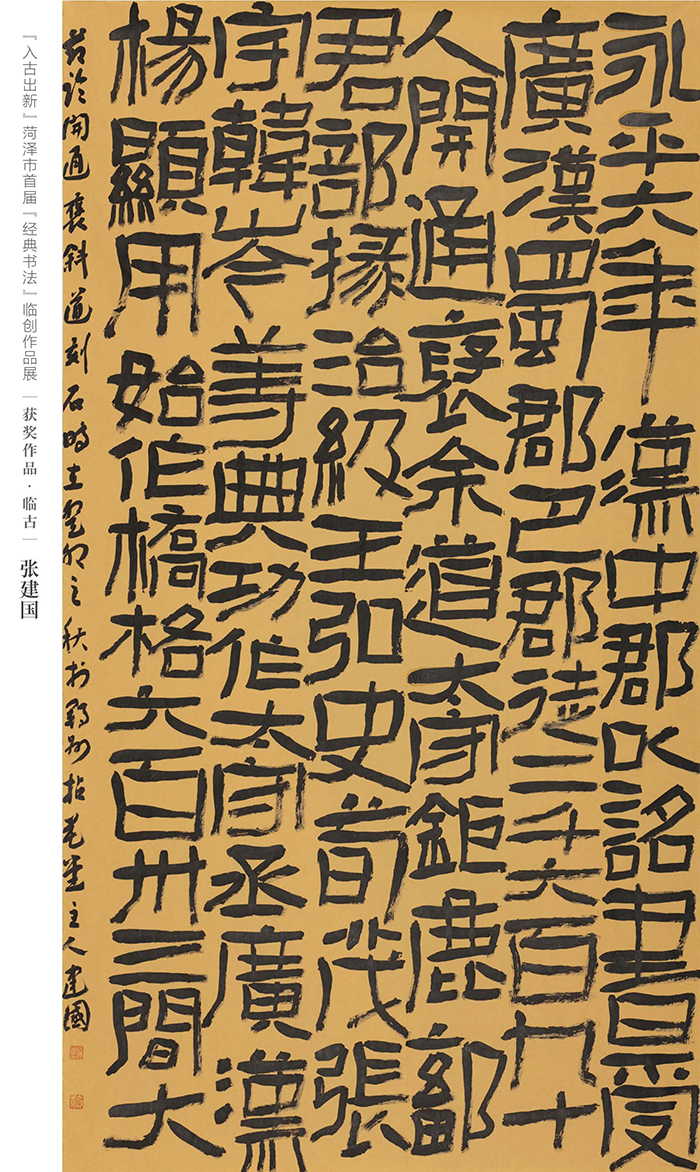 永平六年漢中郡以詔書受
廣漢蜀郡巴郡徒二千六百九十
人開通褒余道太守鉅鹿鄐
君部掾治級王弘史荀茂張
宇韓岑等典功作太守丞廣漢
楊顯用始作橋格六百卅三間大
臨開通褒斜道刻石時在癸卯之秋於 主人建國
『入古出新』菏泽市首届『经典书法』临创作品展｜获奖作品·临古｜张建国